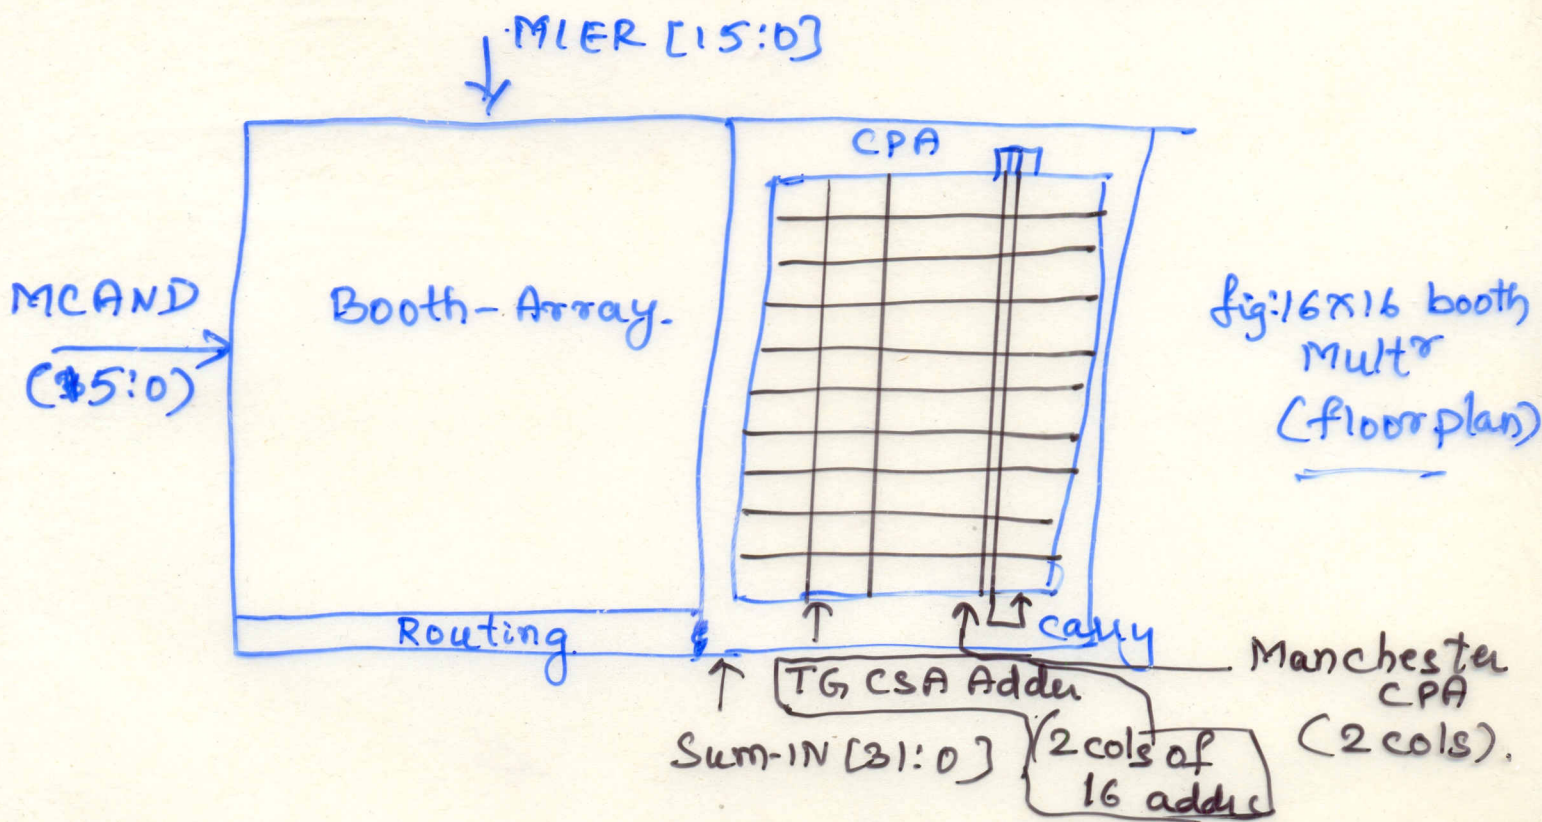 MIER [15:0]
CPA
MCAND
(15:0)
Booth-Array.
fig:16x16 booth
Multr
(floorplan)
Routing
carry
Manchester
CPA
(2 cols).
TG CSA Adder
Sum-IN [31:0]
(2 cols of
16 adder